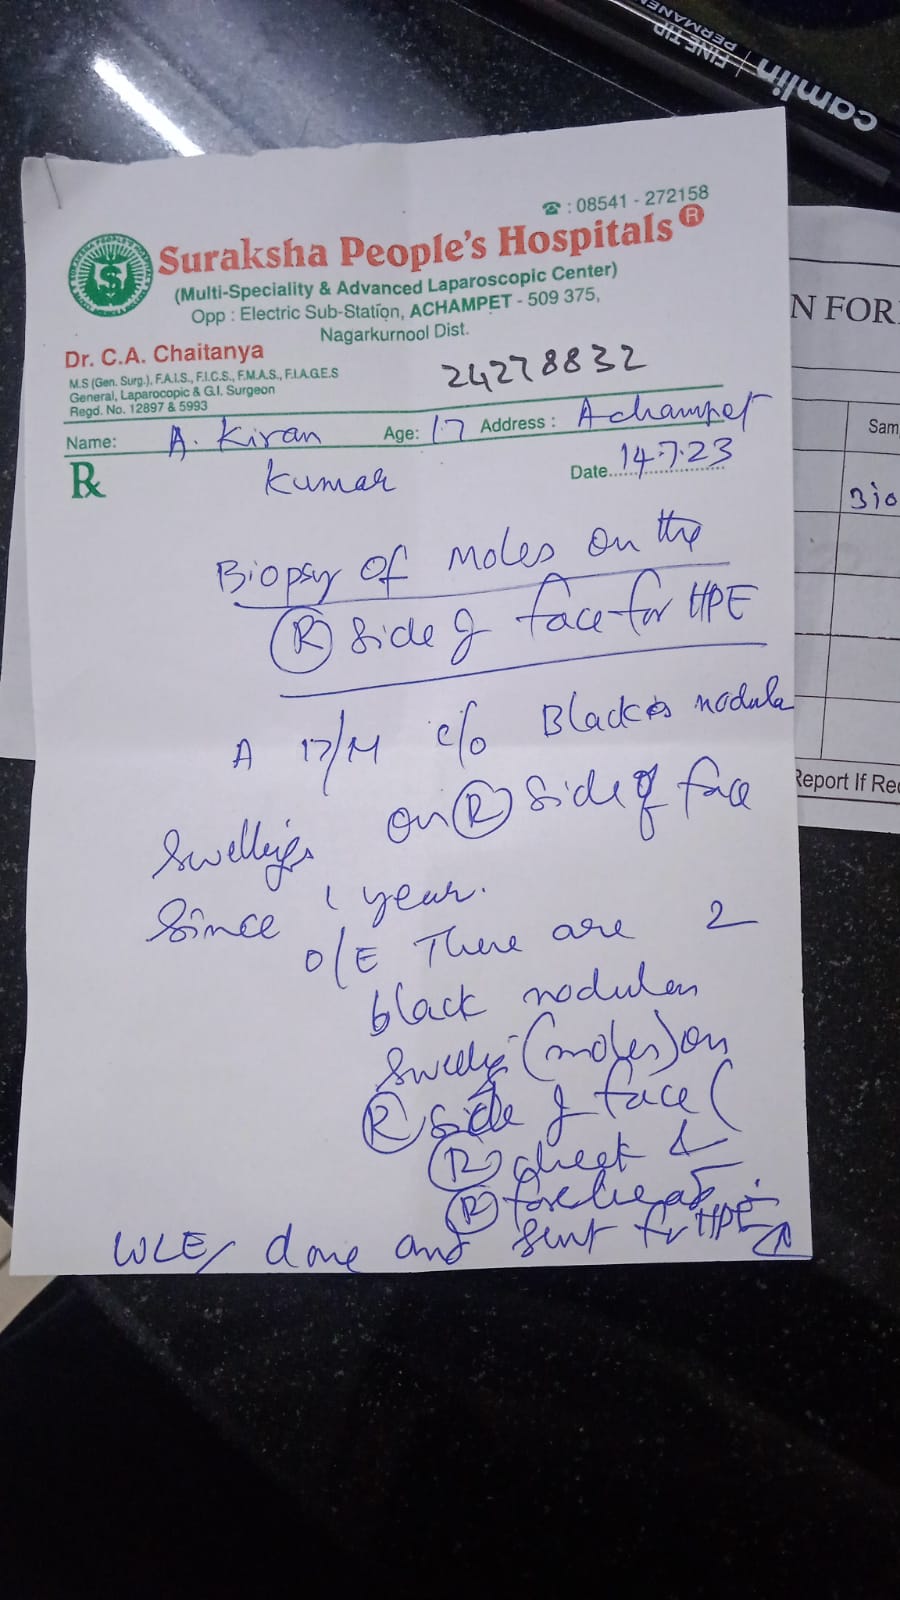 camlin FINE TIP
PERMANEN
☎ : 08541 - 272158
Suraksha People's Hospitals ®
(Multi-Speciality & Advanced Laparoscopic Center)
Opp : Electric Sub-Station, ACHAMPET - 509 375,
Nagarkurnool Dist.
Dr. C.A. Chaitanya
M.S (Gen. Surg.), F.A.I.S., F.I.C.S., F.M.A.S., F.I.A.G.E.S
General, Laparocopic & G.I. Surgeon
Regd. No. 12897 & 5993
24278832
Name: A. Kiran Age: 17 Address : Achampet
Rx Kumar Date 14.7.23
Biopsy of Moles on the
(R) Side of face for HPE
A 17/M c/o Black nodula
Swellings on (R) Side of face
Since 1 year.
O/E There are 2
black nodular
Swellgs (moles) on
(R) Side of face (
(R) cheek &
(R) forehead
WLE done and sent for HPE
N FOR
Sam
Bio
Report If Re